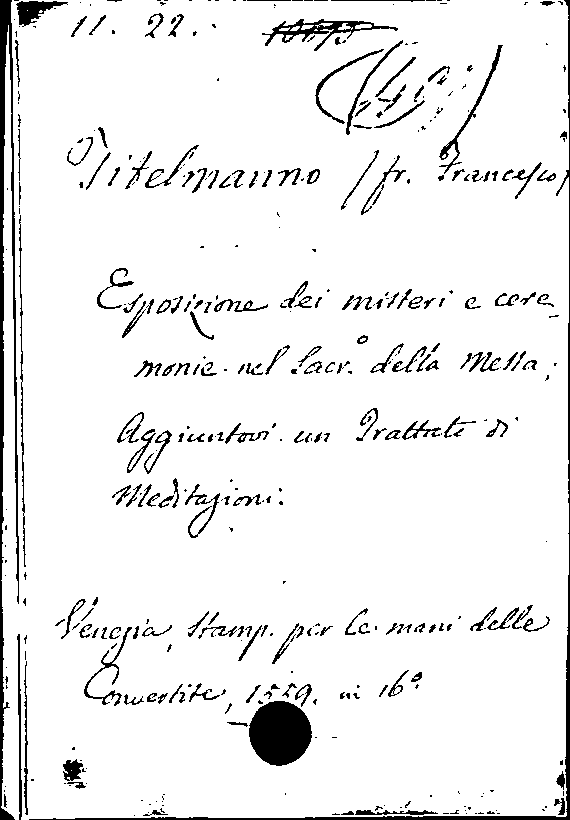 11. 22.
Titelmanno (fr. Francesco)
Esposizione dei misteri e cere-
monie nel Sacr.º della Messa;
Aggiuntovi un Trattato di
Meditazioni.
Venezia, Stamp. per le mani delle
Convertite, 1559. in 16º